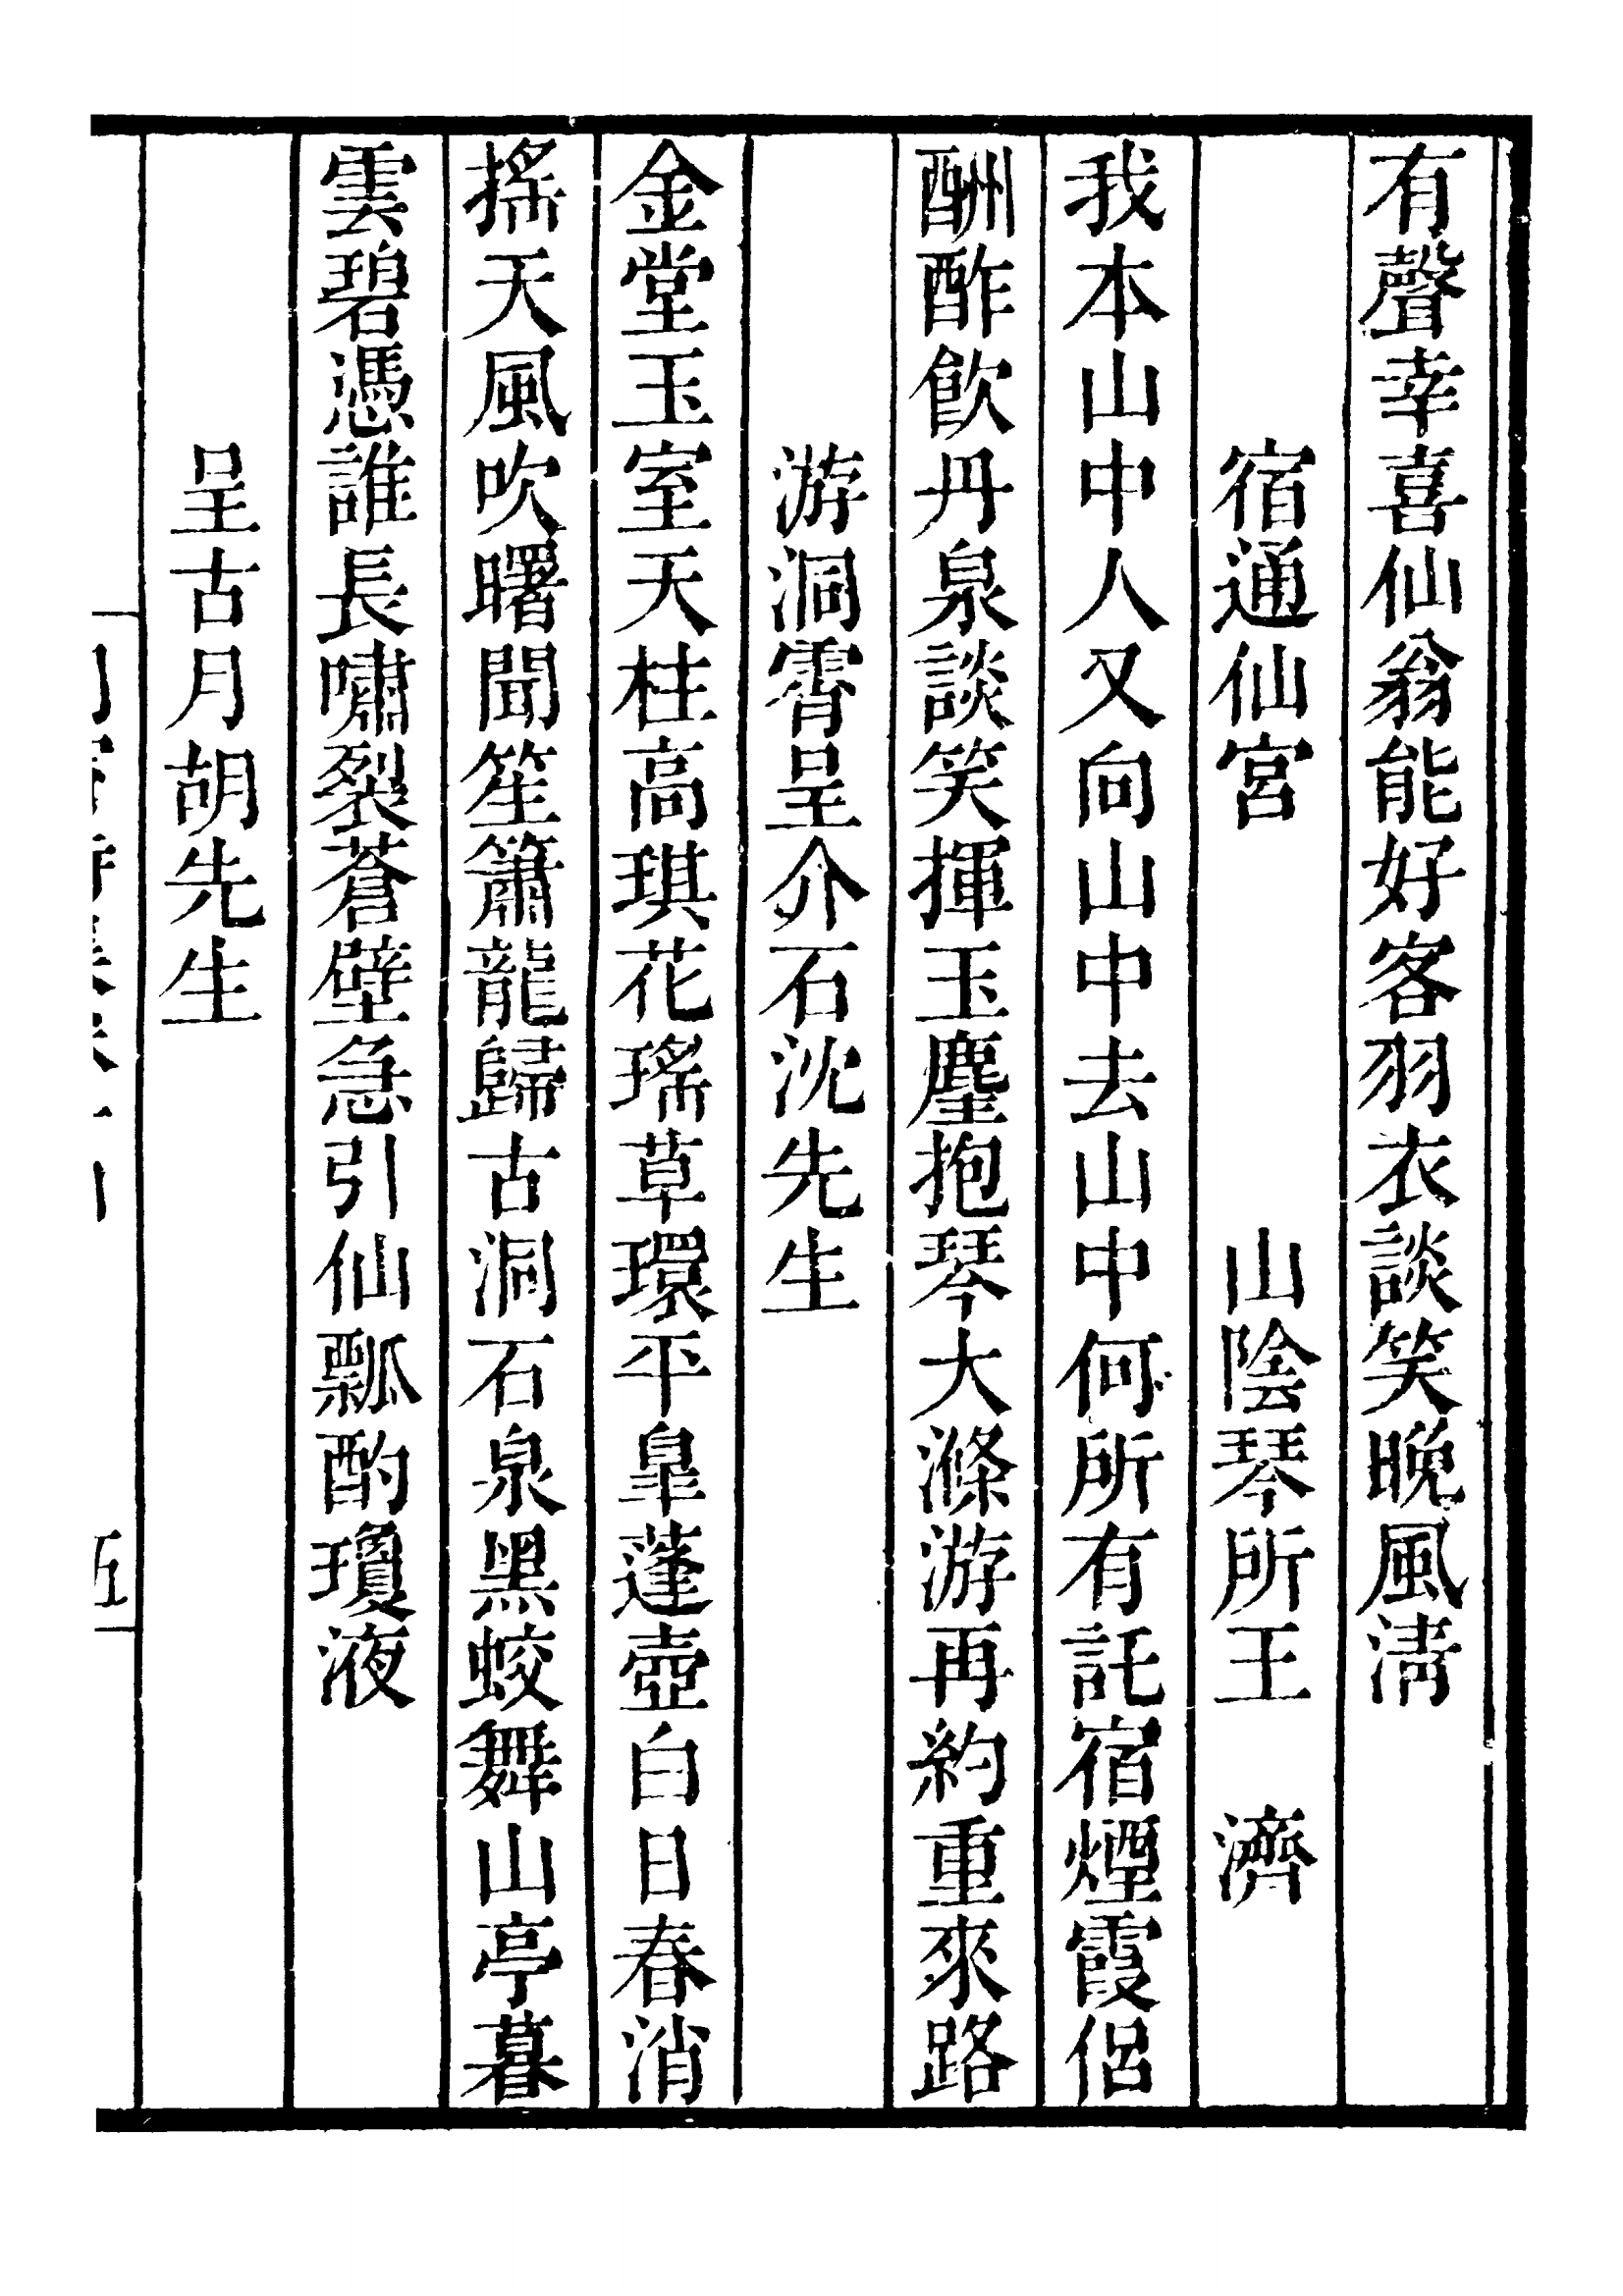 有聲幸喜仙翁能好客羽衣談笑晚風淸
宿通仙宮　山陰琴所王　濟
我本山中人又向山中去山中何所有託宿煙霞侶
酬酢飮丹泉談笑揮玉麈抱琴大滌游再約重來路
游洞霄呈介石沈先生
金堂玉室天柱高琪花瑤草環平皐蓬壺白日春消
搖天風吹曙聞笙簫龍歸古洞石泉黑蛟舞山亭暮
雲碧憑誰長嘯裂蒼壁急引仙瓢酌瓊液
呈古月胡先生